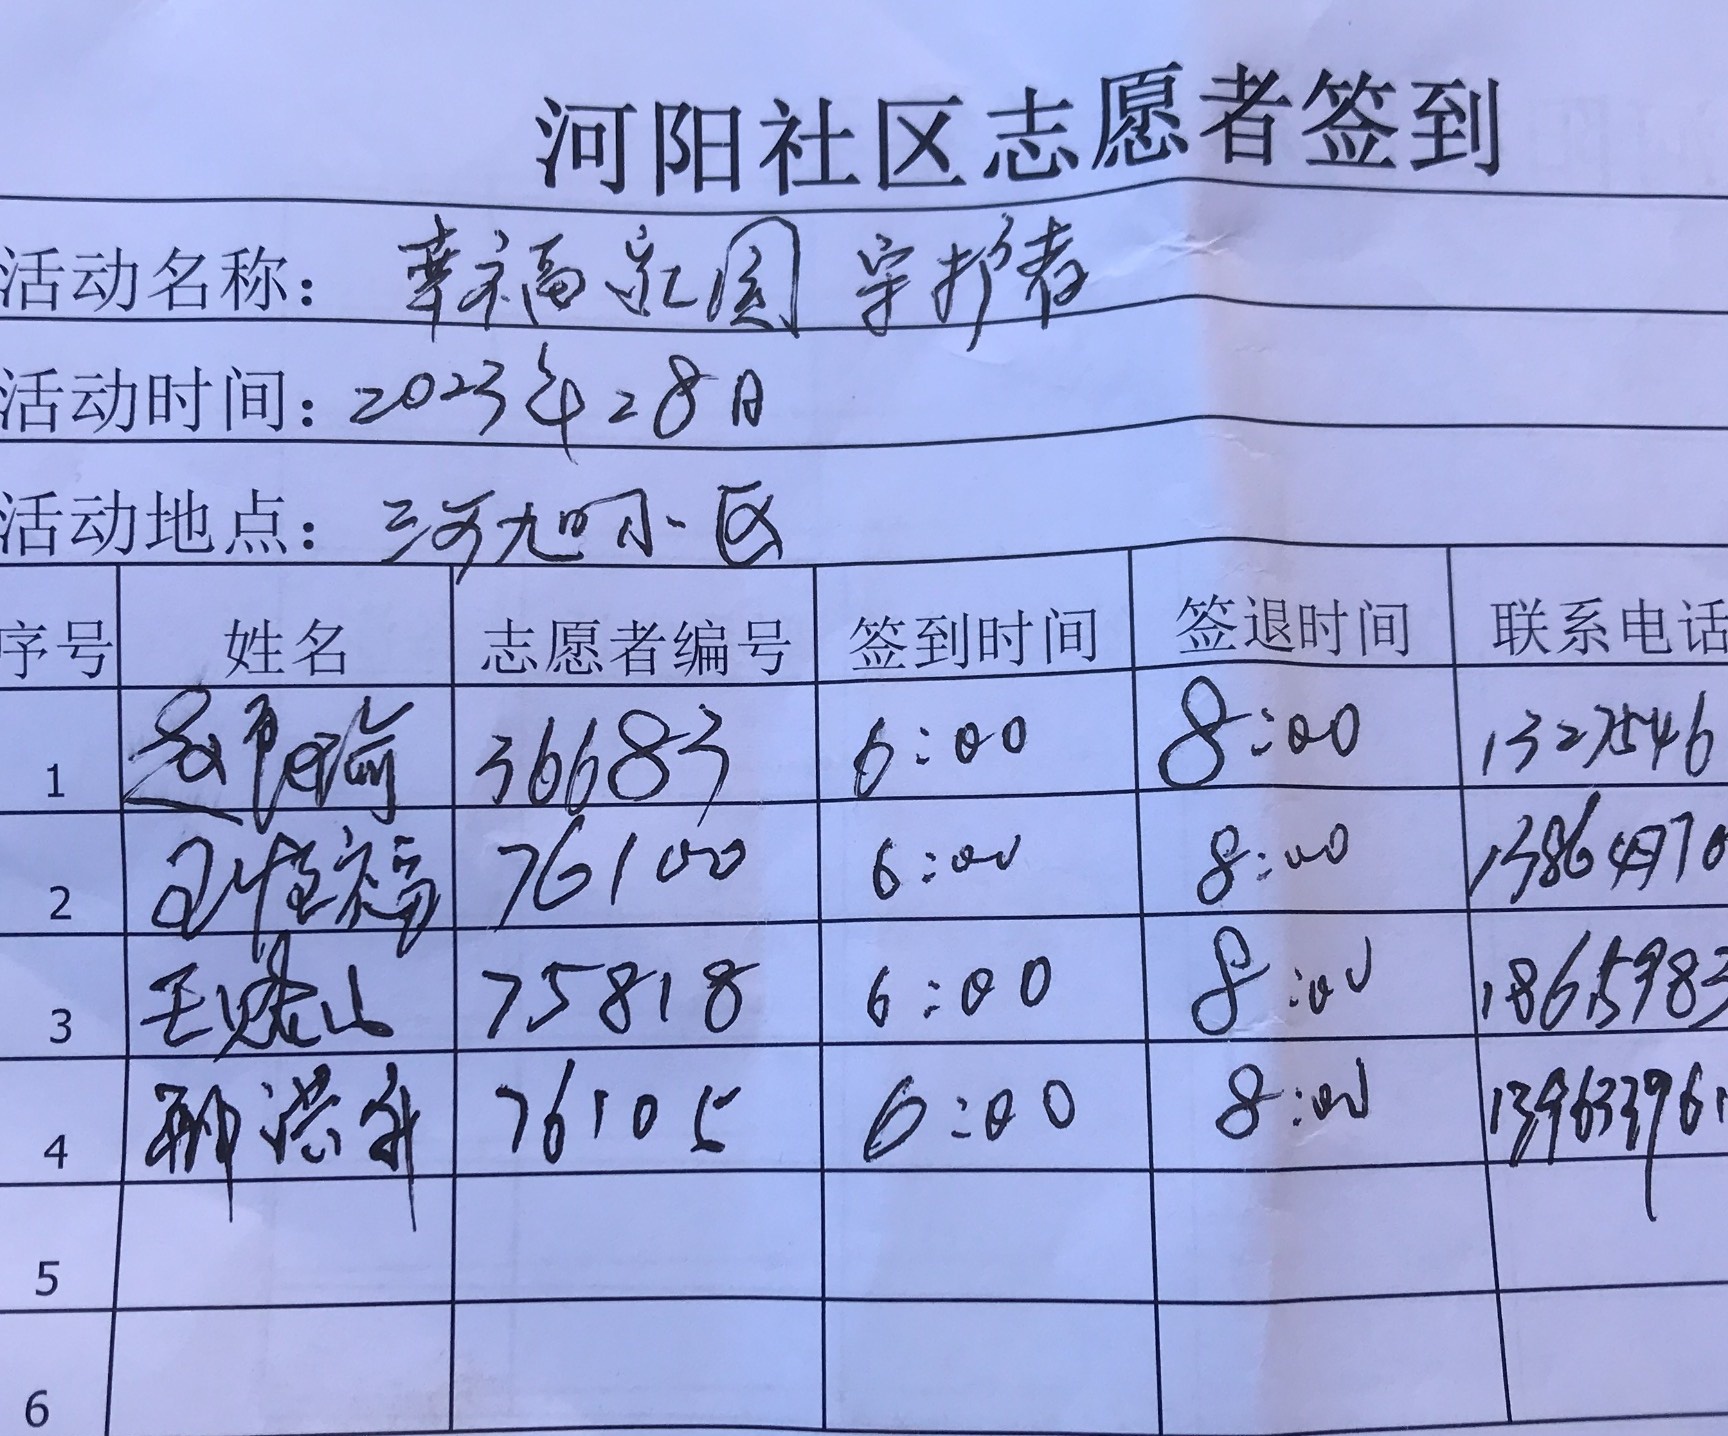 河阳社区志愿者签到
活动名称：幸福家园 守护者
活动时间：2023年28日
活动地点：三河旭日小区
序号 姓名 志愿者编号 签到时间 签退时间 联系电话
1 36683 6:00 8:00 1327546
2 福 76100 6:00 8:00
3 王 山 75818 6:00 8:00 18615983
4 邢洪升 76105 6:00 8:00
5
6